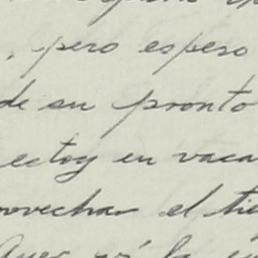 , pero espero
de su pronto
estoy en vaca
rovechar el tie